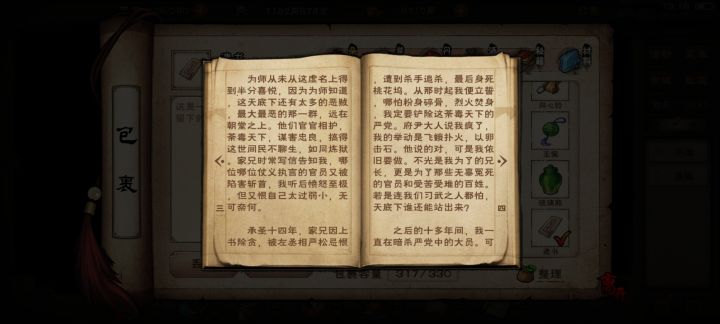 为师从未从这虚名上得
到半分喜悦，因为为师知道
，这天底下还有太多的恶贼
，最大最恶的那一群，远在
朝堂之上。他们官官相护，
荼毒天下，谋害忠良，搞得
这世间民不聊生，如同炼狱
。家兄时常写信告知我，哪
位哪位仗义执言的官员又被
陷害斩首，我听后愤怒至极
，但又恨自己太过弱小，无
可奈何。
承圣十四年，家兄因上
书除贪，被左丞相严松忌恨
三
，遭到杀手追杀，最后身死
桃花坞。从那时起我便立誓
，哪怕粉身碎骨，烈火焚身
，我定要铲除这荼毒天下的
严党。府尹大人说我疯了，
我的举动是飞蛾扑火，以卵
击石。他说的对，可是我依
旧要做。不光是我为了的兄
长，更是为了那些无辜冤死
的官员和受苦受难的百姓。
若是连我们习武之人都怕，
天底下谁还能站出来？
之后的十多年间，我一
直在暗杀严党中的大员。可
四
包裹
包裹容量
317/330
整理